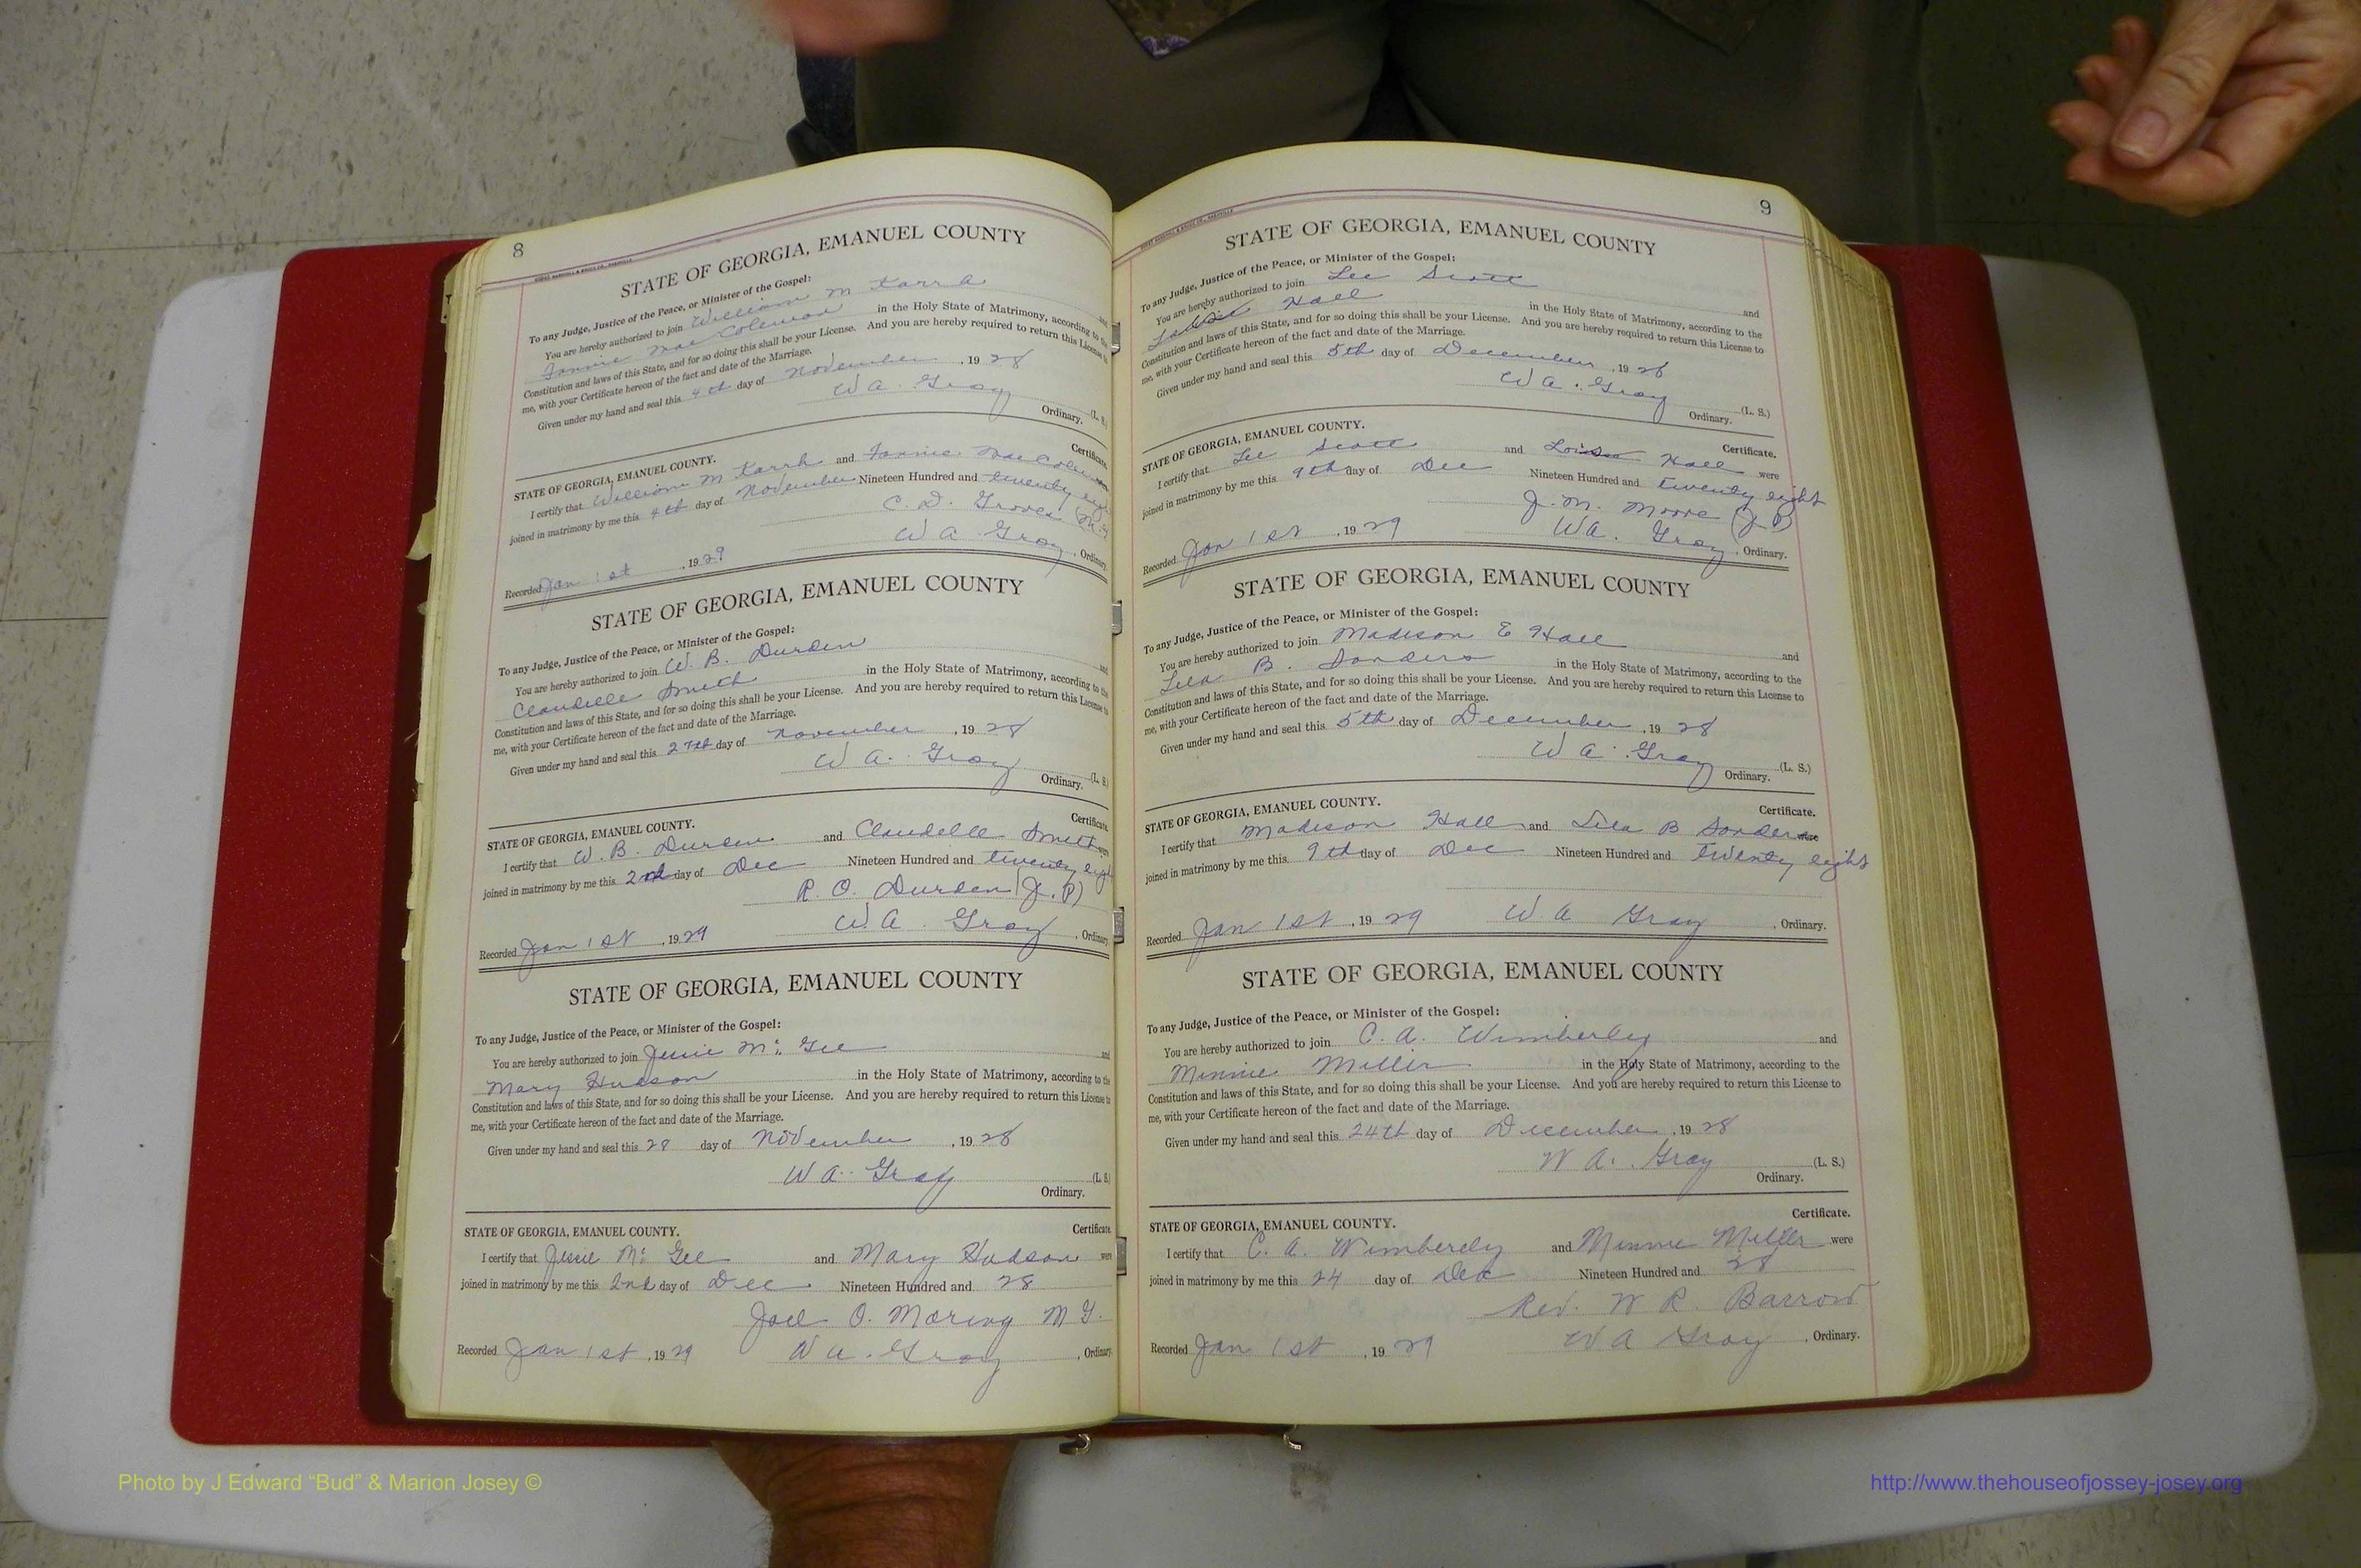 8
STATE OF GEORGIA, EMANUEL COUNTY
To any Judge, Justice of the Peace, or Minister of the Gospel:
You are hereby authorized to join William M Karrh and
Fannie Mae Coleman in the Holy State of Matrimony, according to the
Constitution and laws of this State, and for so doing this shall be your License. And you are hereby required to return this License to
me, with your Certificate hereon of the fact and date of the Marriage.
Given under my hand and seal this 4th day of November, 1928
W A. Gray (L. S.)
Ordinary.
STATE OF GEORGIA, EMANUEL COUNTY. Certificate.
I certify that William M Karrh and Fannie Mae Coleman were
joined in matrimony by me this 4th day of November Nineteen Hundred and twenty eight
C. D. Groves
Recorded Jan 1st, 1929 W A Gray, Ordinary
STATE OF GEORGIA, EMANUEL COUNTY
To any Judge, Justice of the Peace, or Minister of the Gospel:
You are hereby authorized to join W. B. Durden and
Claudelle Smith in the Holy State of Matrimony, according to the
Constitution and laws of this State, and for so doing this shall be your License. And you are hereby required to return this License to
me, with your Certificate hereon of the fact and date of the Marriage.
Given under my hand and seal this 27th day of November, 1928
W A. Gray (L. S.)
Ordinary.
STATE OF GEORGIA, EMANUEL COUNTY. Certificate.
I certify that W. B. Durden and Claudelle Smith were
joined in matrimony by me this 2nd day of Dec Nineteen Hundred and twenty eigh
R. O. Durden (J. P)
Recorded Jan 1st, 1929 W. A. Gray, Ordinary
STATE OF GEORGIA, EMANUEL COUNTY
To any Judge, Justice of the Peace, or Minister of the Gospel:
You are hereby authorized to join Jessie Mc Gee and
Mary Hudson in the Holy State of Matrimony, according to the
Constitution and laws of this State, and for so doing this shall be your License. And you are hereby required to return this License to
me, with your Certificate hereon of the fact and date of the Marriage.
Given under my hand and seal this 28 day of November, 1928
W A. Gray (L. S.)
Ordinary.
STATE OF GEORGIA, EMANUEL COUNTY. Certificate.
I certify that Jessie Mc Gee and Mary Hudson were
joined in matrimony by me this 2nd day of Dec Nineteen Hundred and 28
Joel O. Moring M G.
Recorded Jan 1st, 1929 W A. Gray, Ordinary
9
STATE OF GEORGIA, EMANUEL COUNTY
To any Judge, Justice of the Peace, or Minister of the Gospel:
You are hereby authorized to join Lee Scott and
Hall in the Holy State of Matrimony, according to the
Constitution and laws of this State, and for so doing this shall be your License. And you are hereby required to return this License to
me, with your Certificate hereon of the fact and date of the Marriage.
Given under my hand and seal this 5th day of December, 1928
W A. Gray (L. S.)
Ordinary.
STATE OF GEORGIA, EMANUEL COUNTY. Certificate.
I certify that Lee Scott and Hall were
joined in matrimony by me this 9th day of Dec Nineteen Hundred and twenty eight
J. M. Moore (J. P)
Recorded Jan 1st, 1929 W A. Gray, Ordinary.
STATE OF GEORGIA, EMANUEL COUNTY
To any Judge, Justice of the Peace, or Minister of the Gospel:
You are hereby authorized to join Madison E Hall and
Lila B. Sanders in the Holy State of Matrimony, according to the
Constitution and laws of this State, and for so doing this shall be your License. And you are hereby required to return this License to
me, with your Certificate hereon of the fact and date of the Marriage.
Given under my hand and seal this 5th day of December, 1928
W A. Gray (L. S.)
Ordinary.
STATE OF GEORGIA, EMANUEL COUNTY. Certificate.
I certify that Madison Hall and Lila B Sanders were
joined in matrimony by me this 9th day of Dec Nineteen Hundred and twenty eight
Recorded Jan 1st, 1929 W. A Gray, Ordinary.
STATE OF GEORGIA, EMANUEL COUNTY
To any Judge, Justice of the Peace, or Minister of the Gospel:
You are hereby authorized to join C. A. Wimberley and
Minnie Miller in the Holy State of Matrimony, according to the
Constitution and laws of this State, and for so doing this shall be your License. And you are hereby required to return this License to
me, with your Certificate hereon of the fact and date of the Marriage.
Given under my hand and seal this 24th day of December, 1928
W A. Gray (L. S.)
Ordinary.
STATE OF GEORGIA, EMANUEL COUNTY. Certificate.
I certify that C. A. Wimberely and Minnie Miller were
joined in matrimony by me this 24 day of Dec Nineteen Hundred and 28
Rev. W R. Barrow
Recorded Jan 1st, 1929 W A Gray, Ordinary.
Photo by J Edward “Bud” & Marion Josey ©
http://www.thehouseofjossey-josey.org